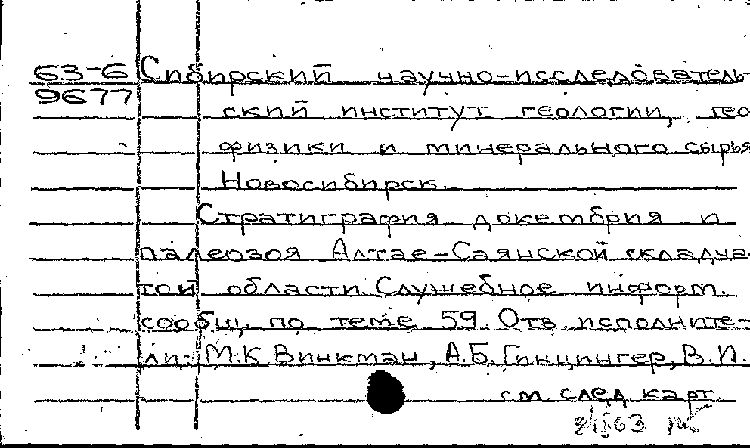 63-6 Сибирский научно-исследователь
9677 ский институт геологии, гео
физики и минерального сырья
Новосибирск
Стратиграфия докембрия и
палеозоя Алтае-Саянской складча-
той области. Служебное информ.
сообщ. по теме 59. Отв. исполните-
ли: М.К. Винкман, А.Б. Гинцингер, В.И.
см. след. карт.